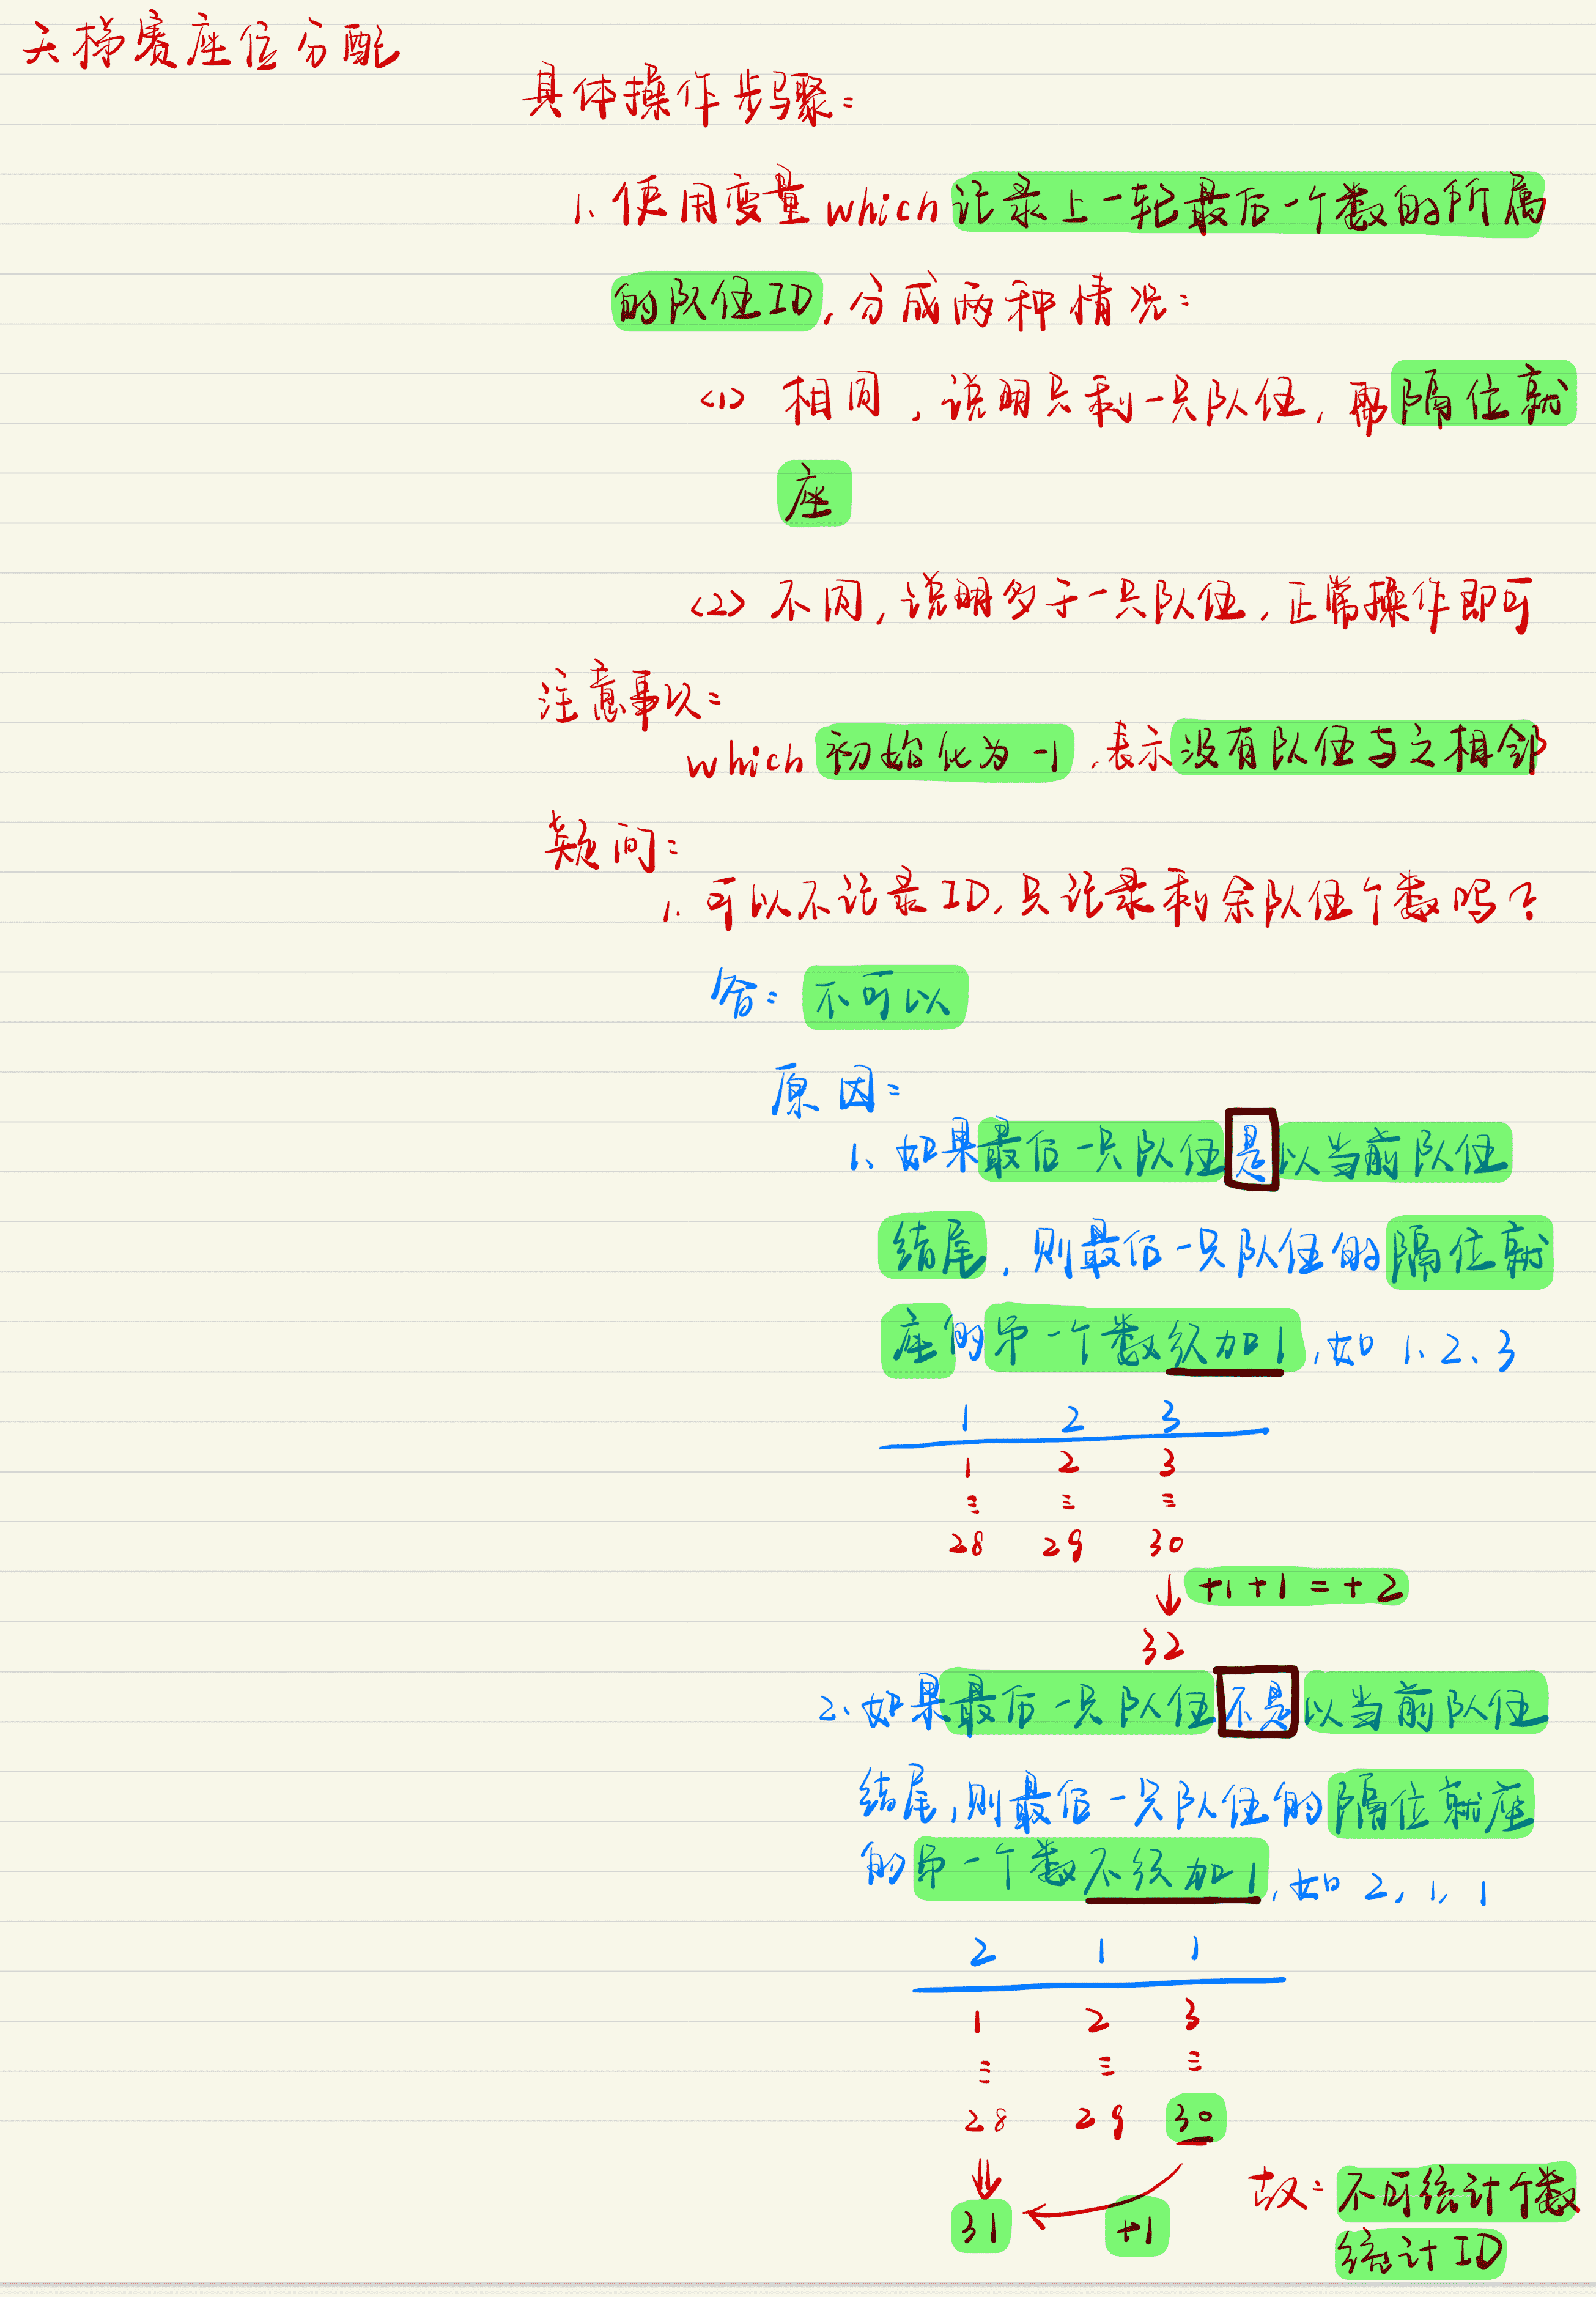 天梯赛座位分配
具体操作步骤:
1. 使用变量which记录上一轮最后一个数的所属
的队伍ID,分成两种情况:
<1> 相同,说明只剩一只队伍,需隔位就
座
<2> 不同,说明多于一只队伍,正常操作即可
注意事以:
which初始化为-1,表示没有队伍与之相邻
疑问:
1. 可以不记录ID,只记录剩余队伍个数吗?
答:不可以
原因:
1、如果最后一只队伍是以当前队伍
结尾,则最后一只队伍的隔位就
座的第一个数须加1,如1、2、3
1 2 3
1 2 3
⋮ ⋮ ⋮
28 29 30
↓ +1+1=+2
32
2、如果最后一只队伍不是以当前队伍
结尾,则最后一只队伍的隔位就座
的第一个数不须加1,如2,1,1
2 1 1
1 2 3
⋮ ⋮ ⋮
28 29 30
31 +1
故:不可统计个数
统计ID